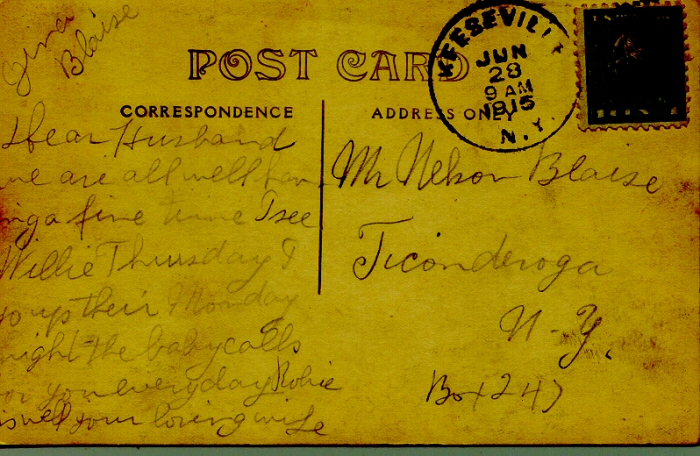 Blaise
POST CARD
KEESEVILLE
JUN
28
9 AM
1915
N.Y.
CORRESPONDENCE
ADDRESS ONLY
Dear Husband
we are all well hav
inga fine time I see
Willie Thursday &
go up their Monday
night the baby calls
for you everyday Robie
is well your loving wife
Mr Nelson Blaise
Ticonderoga
N-Y.
Box 247